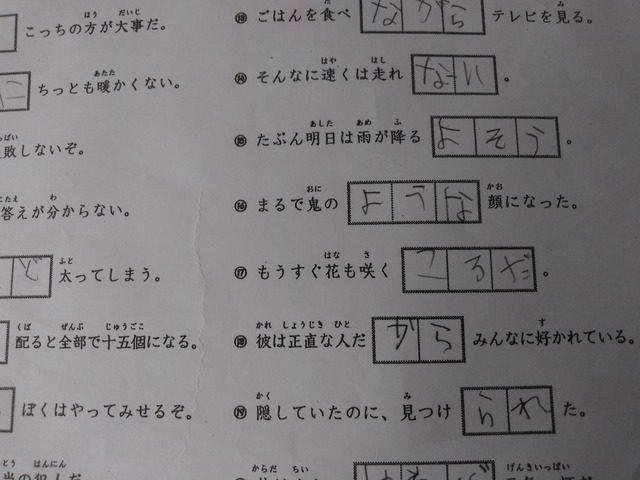 こっちの方が大事だ。
ちっとも暖かくない。
敗しないぞ。
答えが分からない。
ど 太ってしまう。
配ると全部で十五個になる。
ぼくはやってみせるぞ。
⑬ ごはんを食べ ながら テレビを見る。
⑭ そんなに速くは走れ ない 。
⑮ たぶん明日は雨が降る よそう 。
⑯ まるで鬼の ような 顔になった。
⑰ もうすぐ花も咲く ころだ 。
⑱ 彼は正直な人だ から みんなに好かれている。
⑲ 隠していたのに、見つけ られ た。